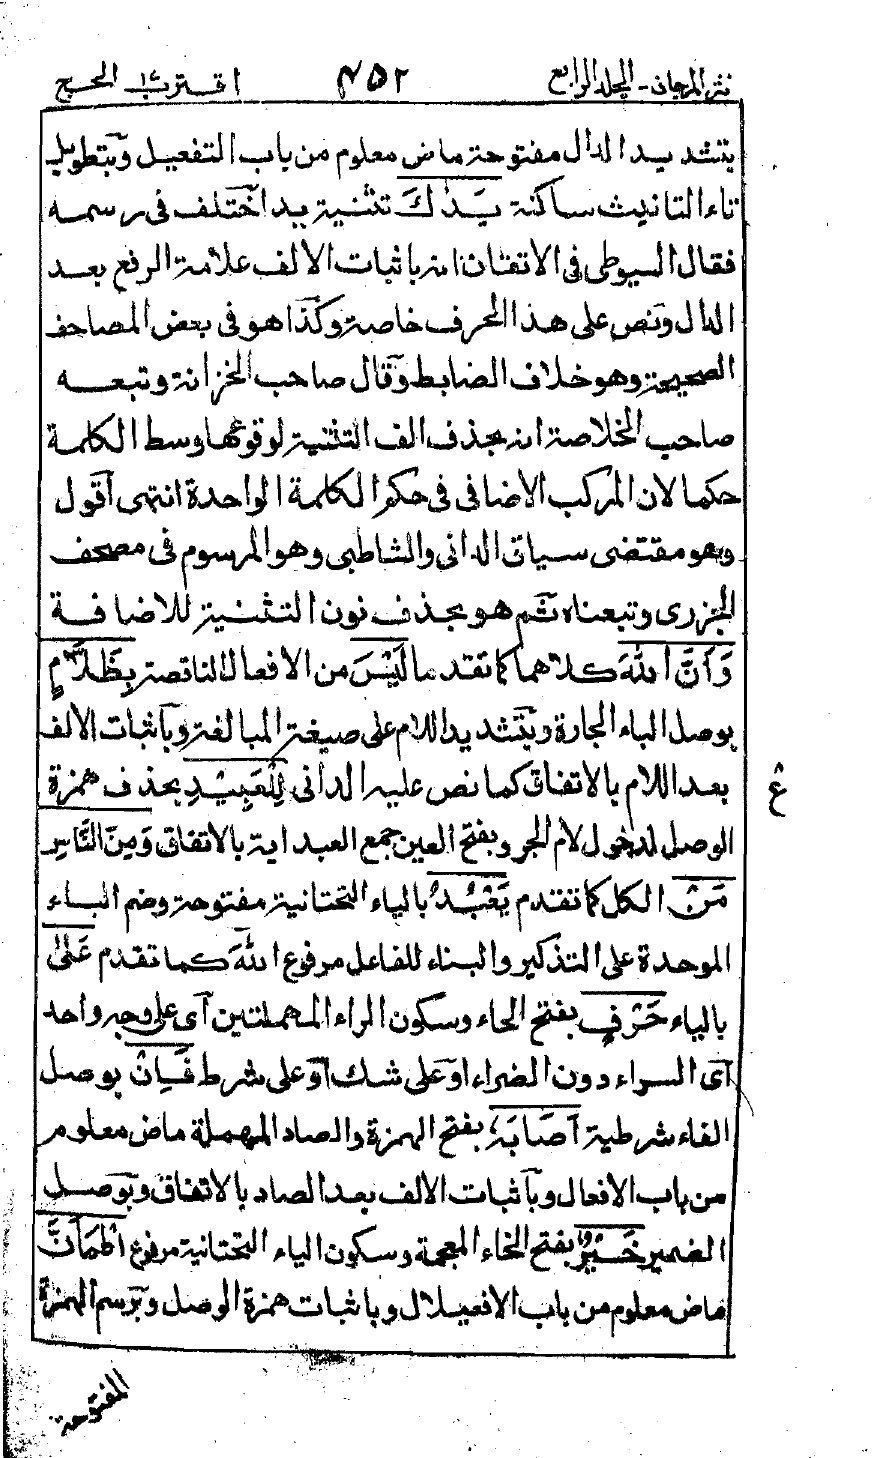 نثر المرجان - المجلد الرابع ٤٥٢ اقترب ١٧ الحج
بتشديد الدال مفتوحة ماض معلوم من باب التفعيل وبتطويل
تاء التانيث ساكنة يَدٰكَ تثنية يد اختلف في رسمه
فقال السيوطي في الاتقان انه باثبات الالف علامة الرفع بعد
الدال ونص على هذا الحرف خاصة وكذا هو في بعض المصاحف
الصحيحة وهو خلاف الضابط وقال صاحب الخزانة وتبعه
صاحب الخلاصة انه بحذف الف التثنية لوقوعها وسط الكلمة
حكما لان المركب الاضافي في حكم الكلمة الواحدة انتهى اقول
وهو مقتضى سياق الداني والشاطبي وهو المرسوم في مصحف
الجزري وتبعناه ثم هو بحذف نون التثنية للاضافة
وَاَنَّ اللّٰهَ كلاهما كما تقدما لَيْسَ من الافعال الناقصة بِظَلَّامٍ
بوصل الباء الجارة وبتشديد اللام على صيغة المبالغة وباثبات الالف
بعد اللام بالاتفاق كما نص عليه الداني لِلْعَبِيْدِ بحذف همزة
ع
الوصل لدخول لام الجر وبفتح العين جمع العبد اية بالاتفاق وَمِنَ النَّاسِ
مَنْ الكل كما تقدم يَعْبُدُ بالياء التحتانية مفتوحة وضم الباء
الموحدة على التذكير والبناء للفاعل مرفوع اللّٰهَ كما تقدم عَلٰى
بالياء حَرْفٍ بفتح الحاء وسكون الراء المهملتين اى على وجه واحد
اى السراء دون الضراء او على شك او على شرط فَاِنْ بوصل
الفاء شرطية اَصَابَهٗ بفتح الهمزة والصاد المهملة ماض معلوم
من باب الافعال وباثبات الالف بعد الصاد بالاتفاق وبوصل
الضمير خَيْرٌ بفتح الخاء المعجمة وسكون الياء التحتانية مرفوع اطْمَاَنَّ
ماض معلوم من باب الافعيلال وباثبات همزة الوصل وبرسم الهمزة
المفتوحة